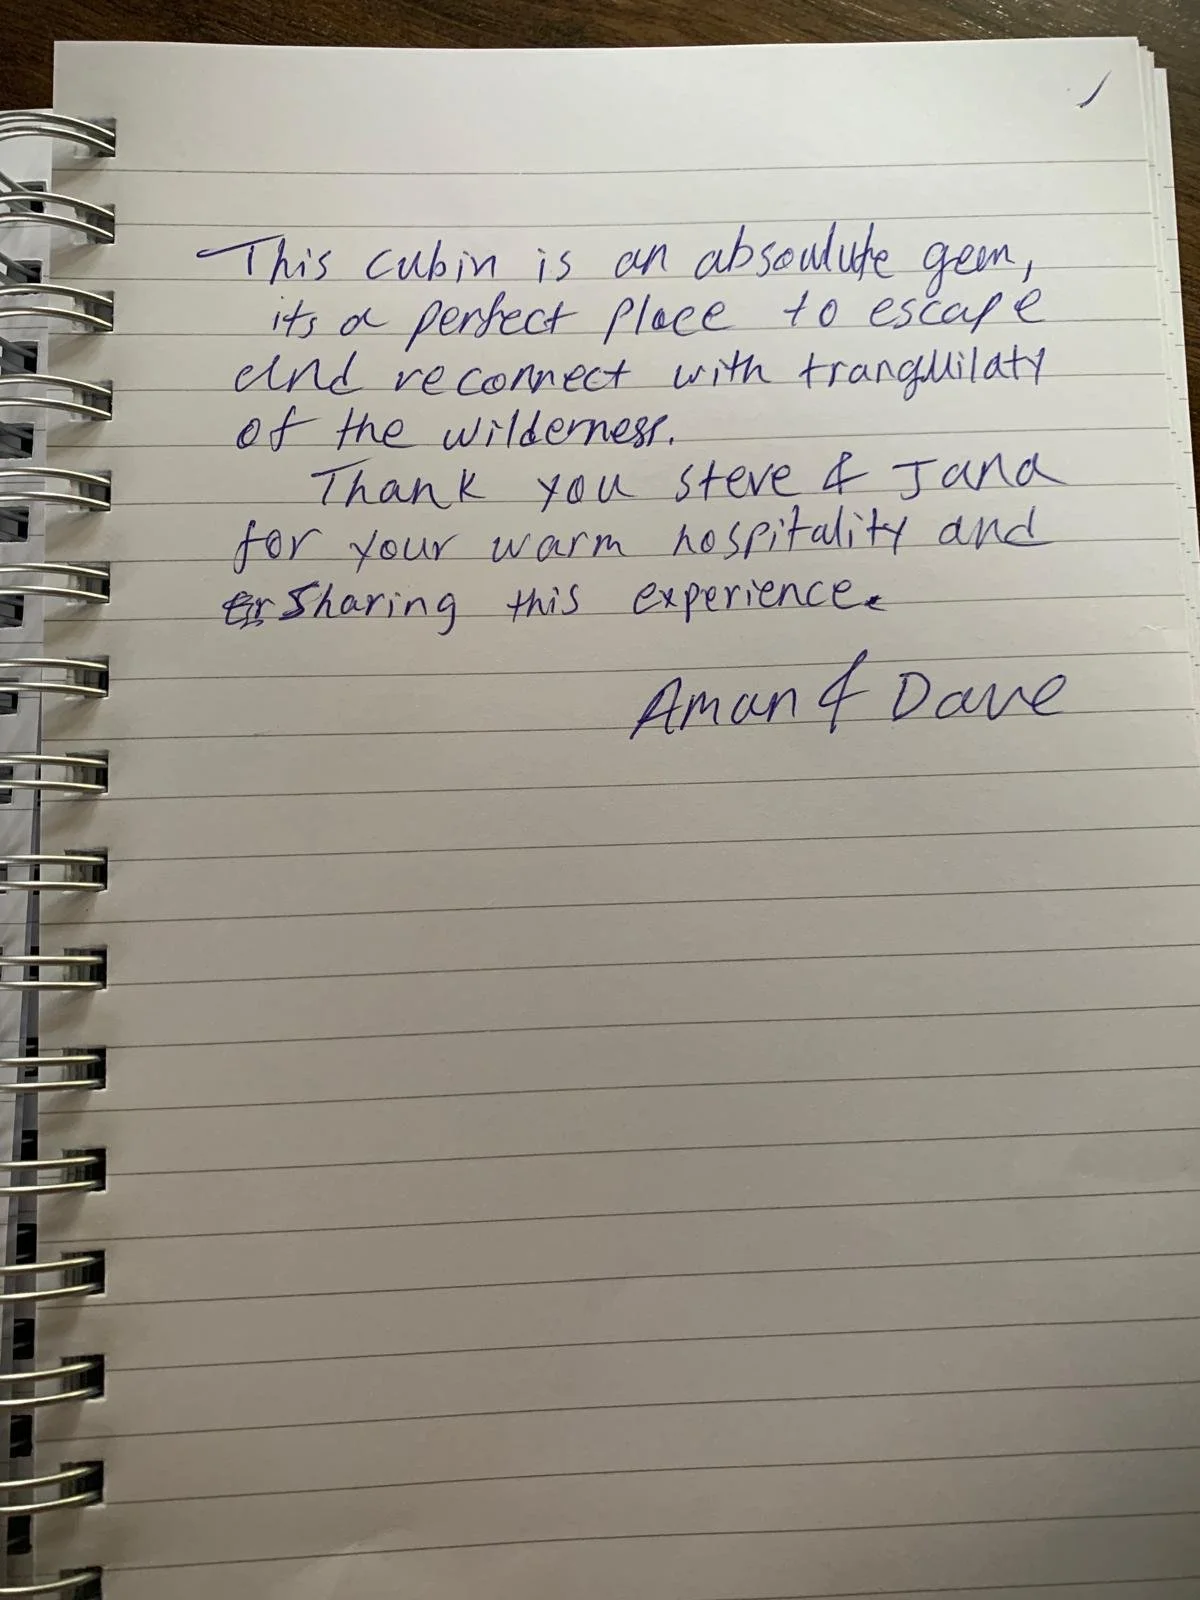 This cabin is an absoulute gem,
its a perfect place to escape
and reconnect with tranquilaty
of the wilderness.
Thank you Steve & Jana
for your warm hospitality and
sharing this experience.
Aman & Dave